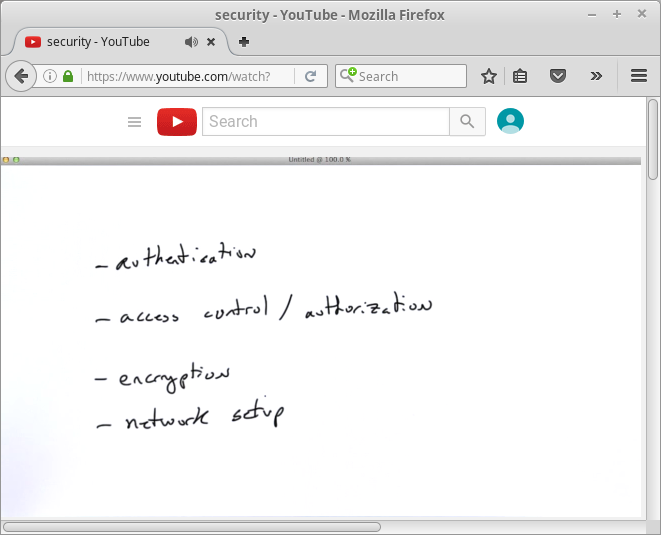 security - YouTube - Mozilla Firefox
security - YouTube
https://www.youtube.com/watch?
Search
Search
Untitled @ 100.0 %
- authentication
- access control / authorization
- encryption
- network setup